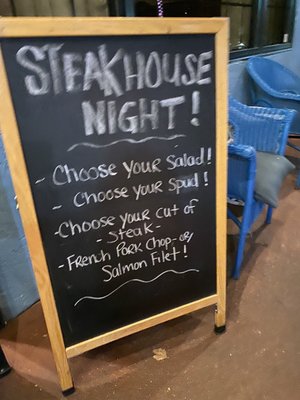 STEAKHOUSE
NIGHT!
- Choose Your Salad!
- Choose Your Spud!
- Choose Your Cut of
- Steak -
- French Pork Chop - or
Salmon Filet!